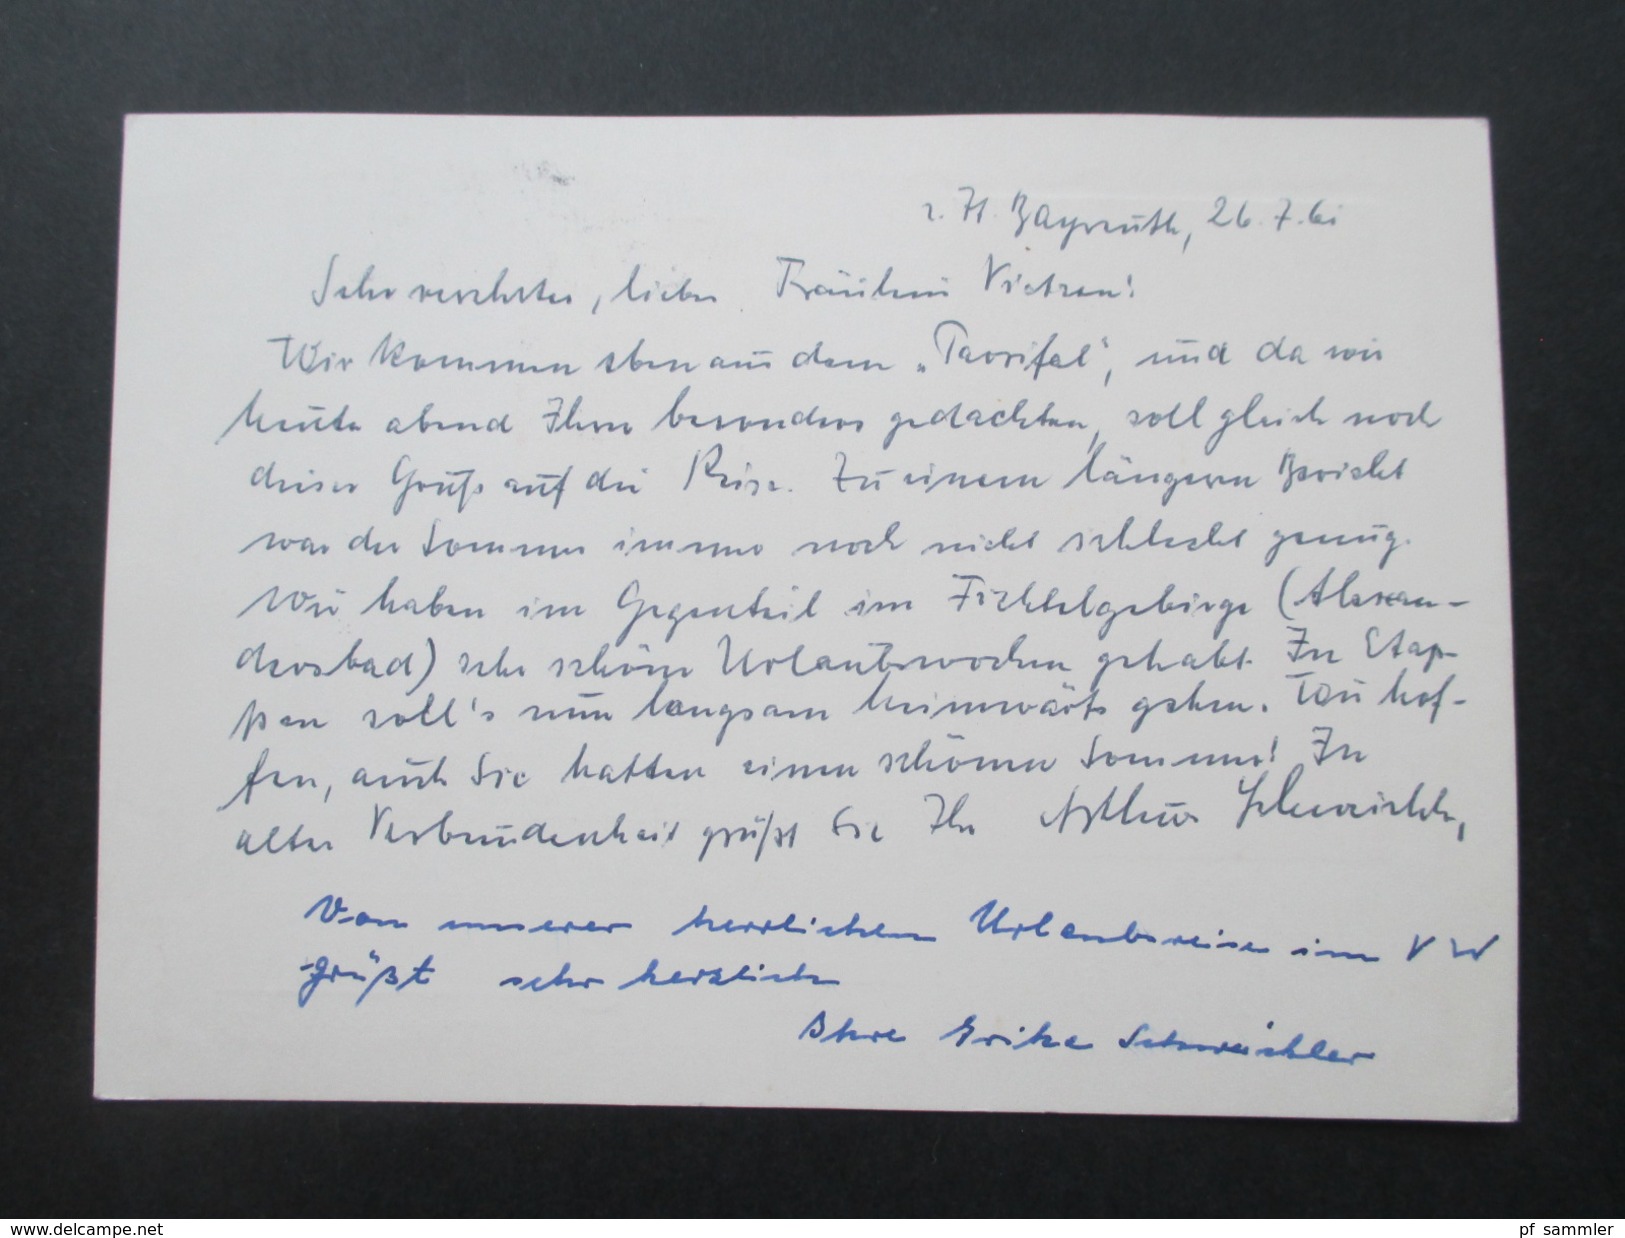 z. Zt. Bayreuth, 26.7.61
Sehr verehrtes, liebes Fräulein
Wir kommen eben aus dem „Parsifal", und da wir
heute abend Ihrer besonders gedachten, soll gleich noch
dieser Gruß auf die Reise. Zu einem längern Bericht
war der Sommer immer noch nicht schlecht genug.
Wir haben im Gegenteil im Fichtelgebirge (Alexan-
dersbad) sehr schöne Urlaubswochen gehabt. In Etap-
pen soll's nun langsam heimwärts gehen. Wir hof-
fen, auch Sie hatten einen schönen Sommer! In
alter Verbundenheit grüßt Sie Ihr Arthur
Von unserer herrlichen Urlaubsreise im VW
grüßt sehr herzlich
Ihre Erika
www.delcampe.net
pf_sammler